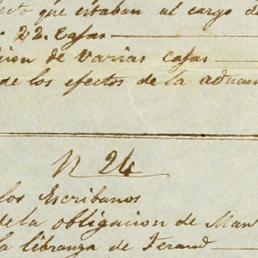 ecto que estaban al cargo de
22. Cajas
cion de varias cajas
de los efectos de la aduan
N 24
los Escribanos
de la obligacion de Man
la libranza de Ferand